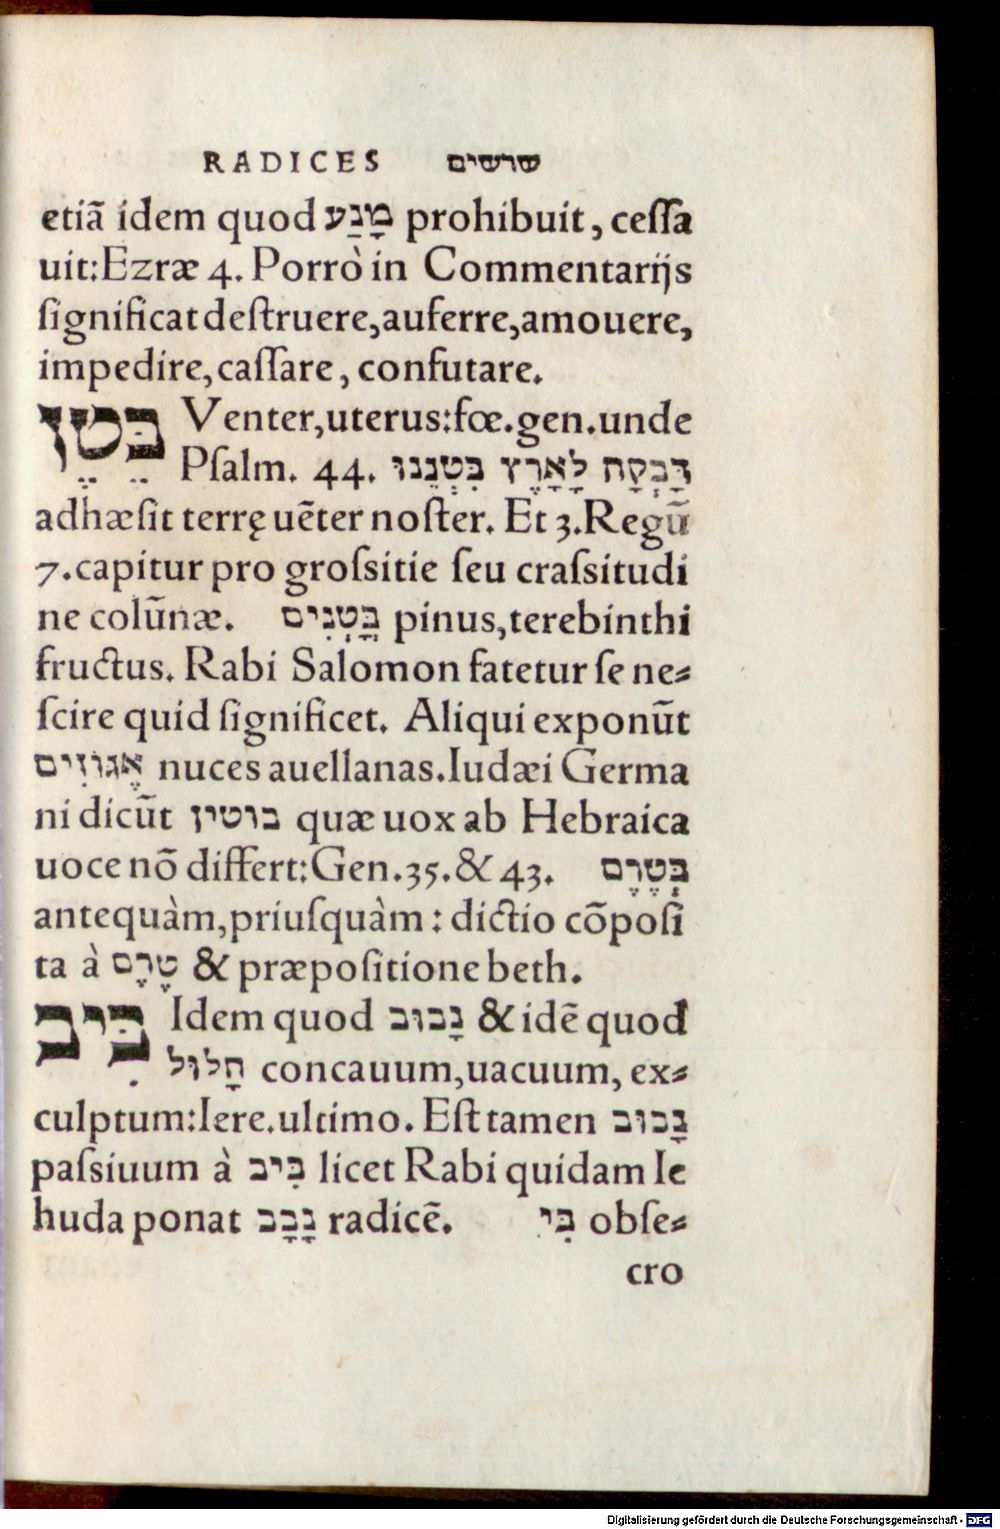 RADICES שרשים
etiã idem quod מָנַע prohibuit, ceſſa
uit: Ezræ 4. Porrò in Commentarijs
ſignificat deſtruere, auferre, amouere,
impedire, caſſare, confutare.
בֵּטֶן Venter, uterus: fœ. gen. unde
Pſalm. 44. דָּבְקָה לָאָרֶץ בִּטְנֵנוּ
adhæſit terrę uẽter noſter. Et 3. Regũ
7. capitur pro groſsitie ſeu craſsitudi
ne colũnæ. בָּטְנִים pinus, terebinthi
fructus. Rabi Salomon fatetur ſe ne⸗
ſcire quid ſignificet. Aliqui exponũt
אֱגוֹזִים nuces auellanas. Iudæi Germa
ni dicũt בוטין quæ uox ab Hebraica
uoce nõ differt: Gen. 35. & 43. בְּטֶרֶם
antequàm, priuſquàm: dictio cõpoſi
ta à טֶרֶם & præpoſitione beth.
בִּיב Idem quod נָבוּב & idẽ quod
חָלוּל concauum, uacuum, ex⸗
culptum: Iere. ultimo. Eſt tamen נָבוּב
paſsiuum à בִּיב licet Rabi quidam Ie
huda ponat נָבָב radicẽ. בִּי obſe⸗
cro
Digitalisierung gefördert durch die Deutsche Forschungsgemeinschaft - DFG